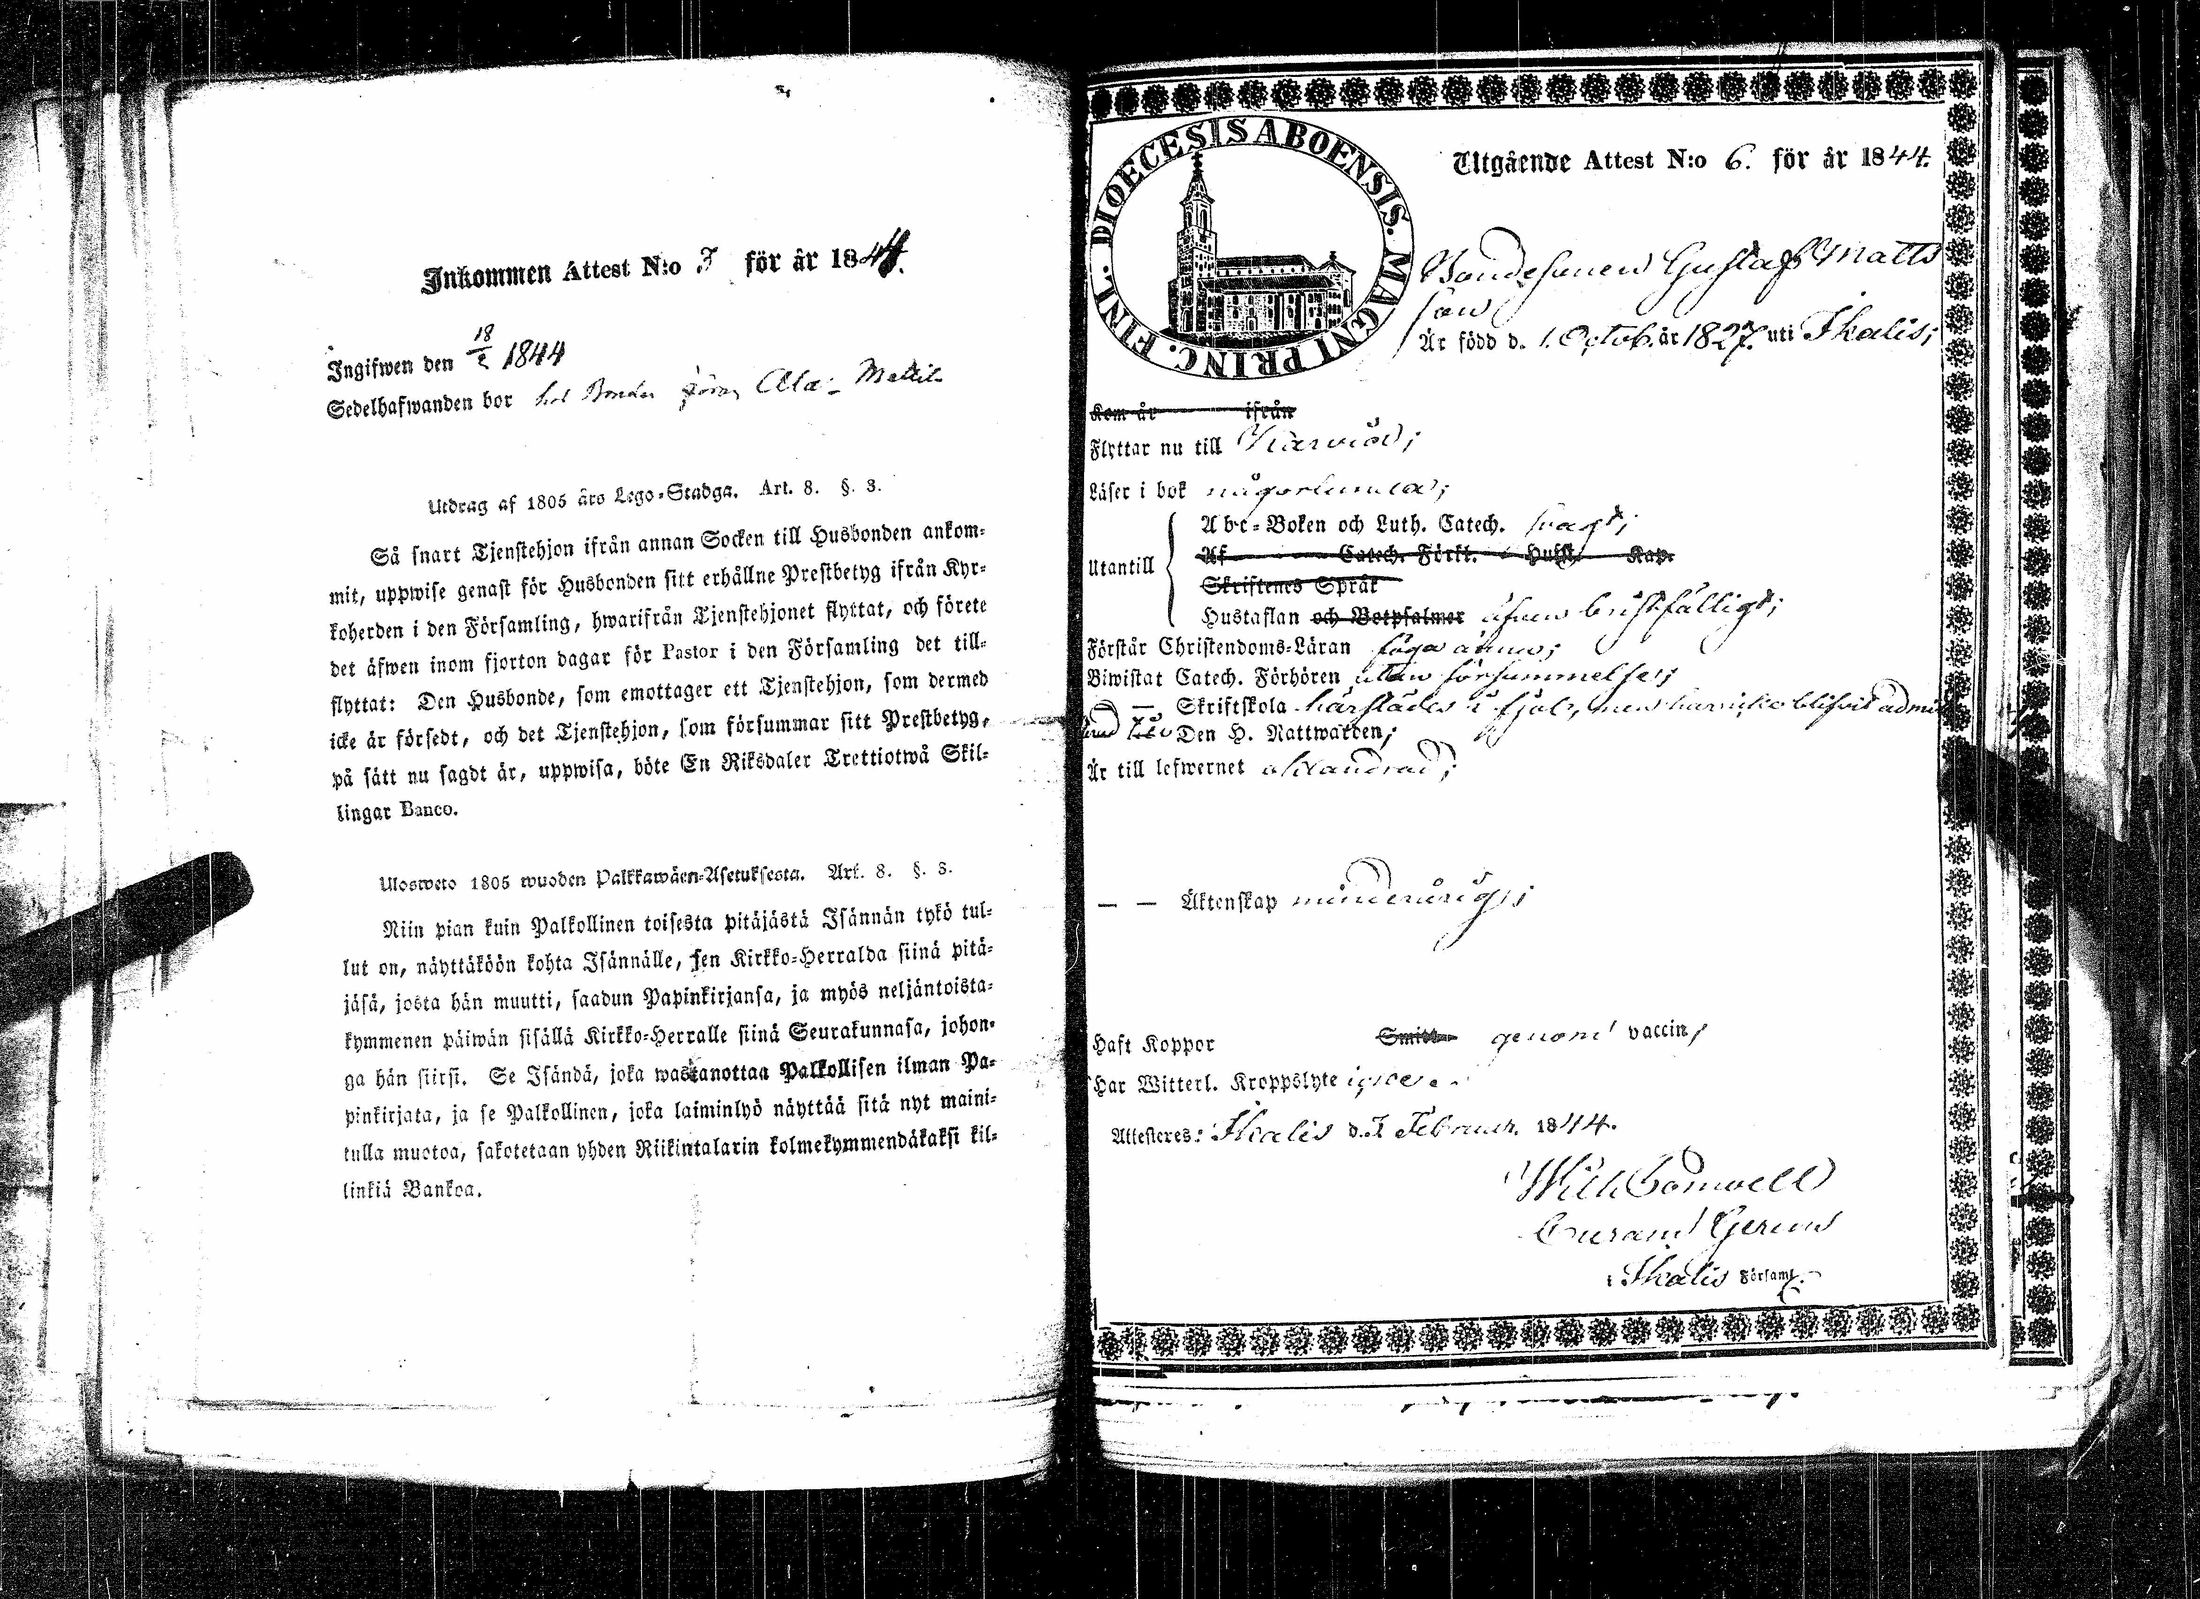 Inkommen Attest N:o 7 för år 1844.
Ingifwen den 18/2 1844
Sedelhafwanden bor hos Bonden Ala-
Utdrag af 1805 års Lego-Stadga. Art. 8. §. 3.
Så snart Tjenstehjon ifrån annan Socken till Husbonden ankom-
mit, uppwise genast för Husbonden sitt erhållne Prestbetyg ifrån Kyr-
koherden i den Församling, hwarifrån Tjenstehjonet flyttat, och förete
det äfwen inom fjorton dagar för Pastor i den Församling det till-
flyttat: Den Husbonde, som emottager ett Tjenstehjon, som dermed
icke är försedt, och det Tjenstehjon, som försummar sitt Prestbetyg,
på sätt nu sagdt är, uppwisa, böte En Riksdaler Trettiotwå Skil-
lingar Banco.
Ulosweto 1805 wuoden Palkkawäen-Asetuksesta. Art. 8. §. 3.
Niin pian kuin Palkollinen toisesta pitäjästä Isännän tykö tul-
lut on, näyttäköön kohta Isännälle, sen Kirkko-Herralda siinä pitä-
jäsä, josta hän muutti, saadun Papinkirjansa, ja myös neljäntoista-
kymmenen päiwän sisällä Kirkko-Herralle siinä Seurakunnasa, johon-
ga hän siirsi. Se Isändä, joka wastanottaa Palkollisen ilman Pa-
pinkirjata, ja se Palkollinen, joka laiminlyö näyttää sitä nyt maini-
tulla muotoa, sakotetaan yhden Riikintalarin kolmekymmendäkaksi kil-
linkiä Bankoa.
DIOECESIS ABOENSIS. MAGNI PRINC. FINL.
Utgående Attest N:o 6. för år 1844.
Bondesonen Gustaf Matts
son
Är född d. 1. Octob. år 1827. uti Ikalis;
Kom år ifrån
Flyttar nu till Karvia;
Läser i bok någorlunda;
Utantill
Abc-Boken och Luth. Catech. svagt;
Af Catech. Förkl. Hufst. Kap.
Skriftenes Språk
Hustaflan och Botpsalmer äfven bristfälligt;
Förstår Christendoms-Läran föga ännu;
Biwistat Catech. Förhören utan försummelse;
— Skriftskola härstädes i fjol, men har icke blifvit admit
terad till Den H. Nattwarden;
Är till lefwernet oklandrad;
— — Äktenskap minderårig;
Haft Koppor Smitt- genom vaccin;
Har Witterl. Kroppslyte
Attesteres: Ikalis d. 7 Februar. 1844.
Wilh.
Curam Gerens
i Ikalis Församl.